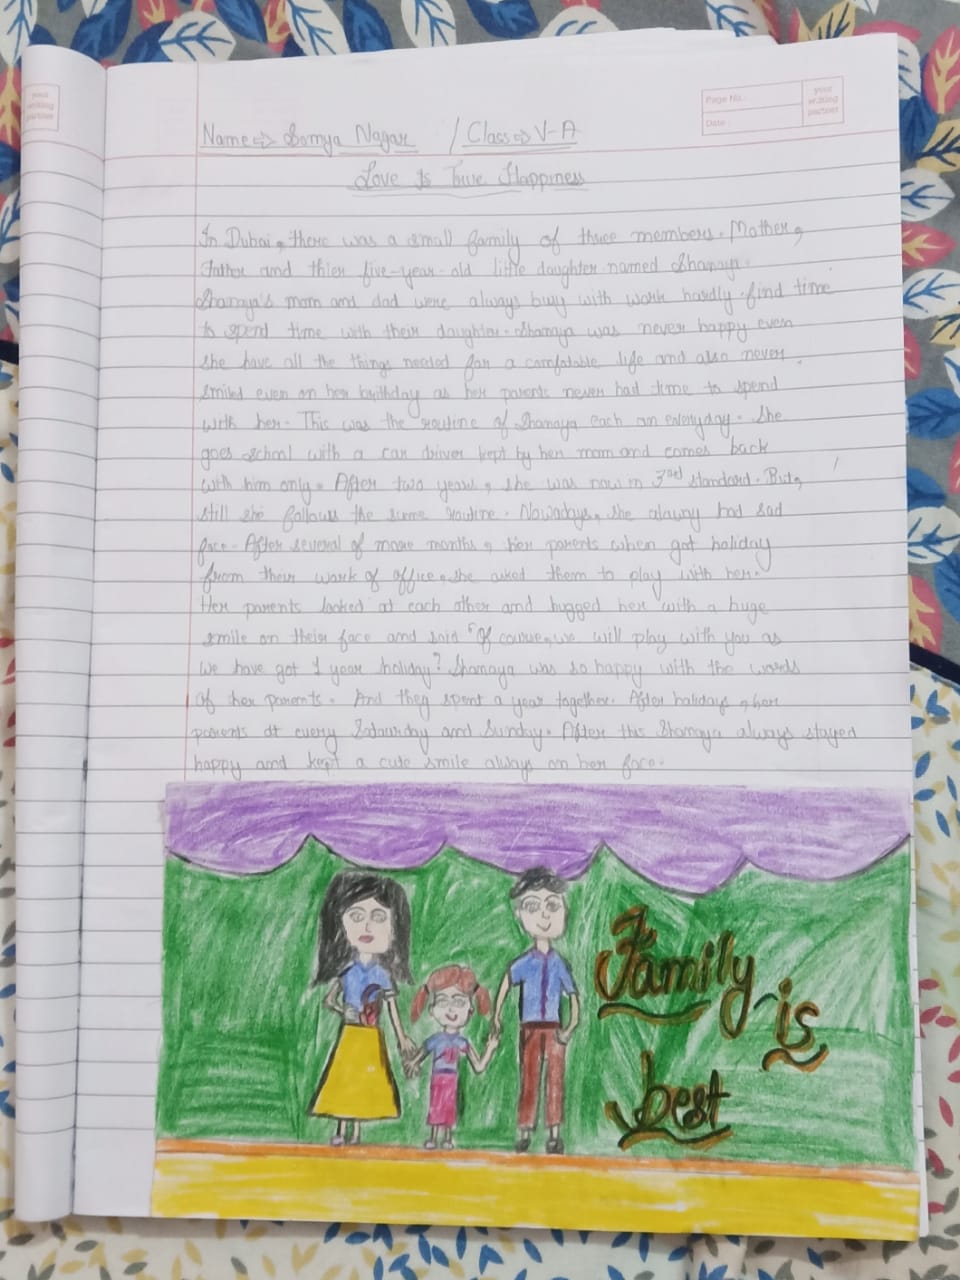 your
writing
partner
Page No.:
Date:
your
writing
partner
Name⇒ Somya Nagar / Class⇒ V-A
Love Is True Happiness
In Dubai, there was a small family of three members. Mother,
Father and thier five-year-old little daughter named Shanaya.
Shanaya's mom and dad were always busy with work hardly find time
to spend time with their daughter. Shanaya was never happy even
she have all the things needed for a comfatable life and also never
smiled even on her birthday as her parents never had time to spend
with her. This was the routine of Shanaya each an everyday. She
goes school with a car driver kept by her mom and comes back
with him only. After two years, she was now in 3rd standard. But,
still she follows the same routine. Nowadays, she alawy had sad
face. After several of more months, her parents when got holiday
from their work of office, she asked them to play with her.
Her parents looked at each other and hugged her with a huge
smile on their face and said "Of course, we will play with you as
we have got 1 year holiday" Shanaya was so happy with the words
of her parents. And they spent a year together. After holidays, her
parents at every Saturday and Sunday. After this Shanaya always stayed
happy and kept a cute smile always on her face.
Family is
best